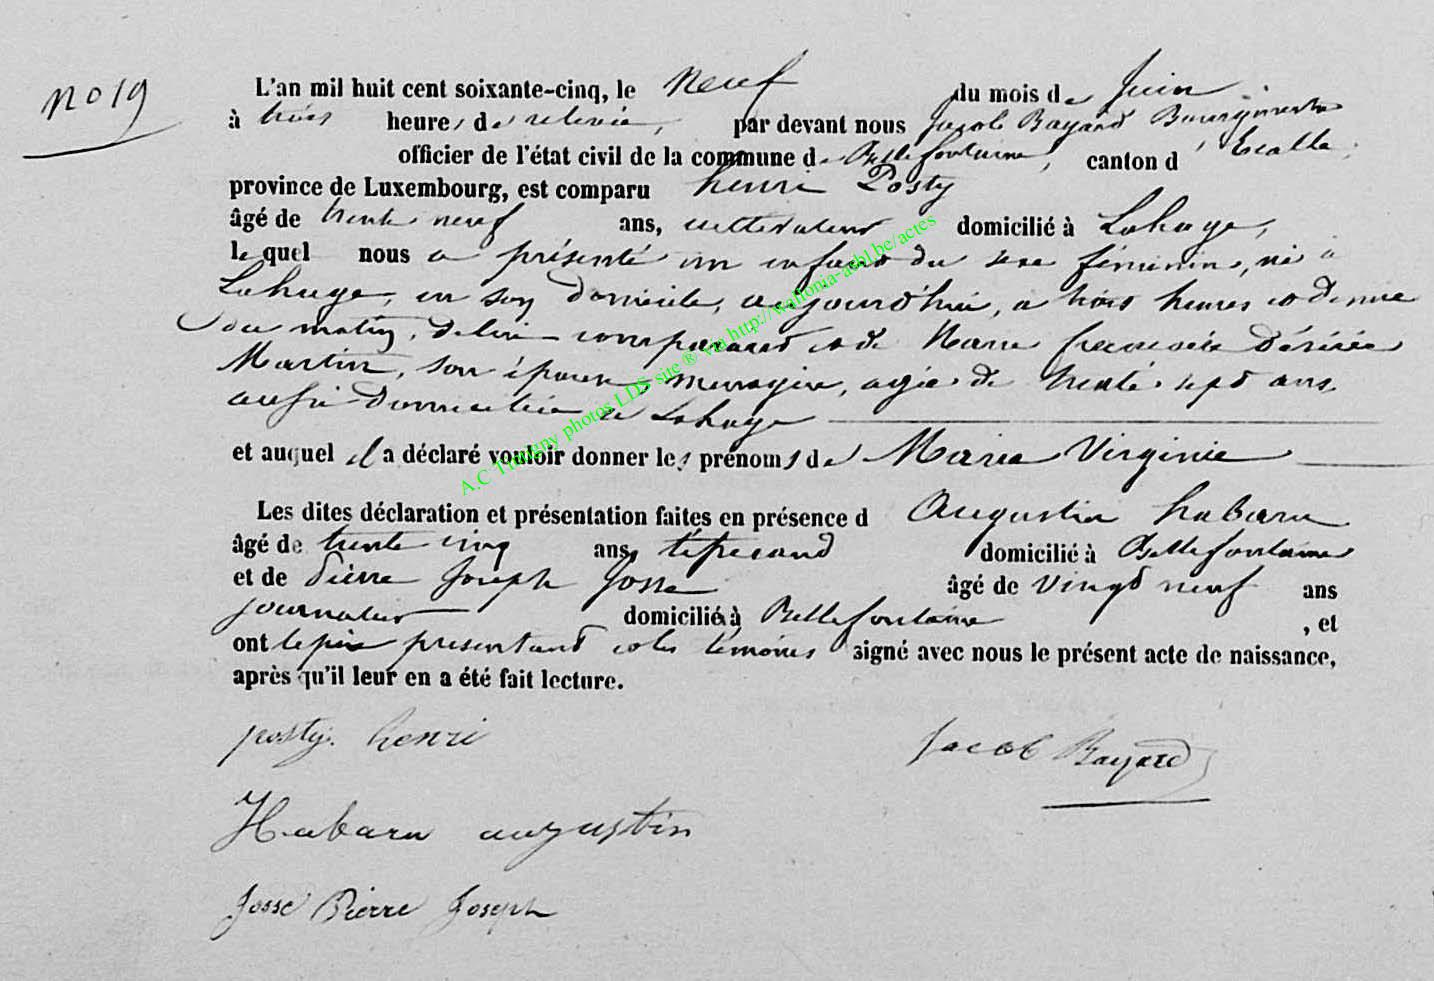 no 19
L'an mil huit cent soixante-cinq, le neuf du mois de Juin
à trois heures de relevée, par devant nous Jacob Bayard Bourgmestre
officier de l'état civil de la commune de Bellefontaine, canton d' Etalle,
province de Luxembourg, est comparu henri Posty
âgé de trente neuf ans, cultivateur domicilié à Lahage,
lequel nous a présenté un enfant du sexe féminin, né à
Lahage, en son domicile, aujourd'hui, à trois heures et demie
du matin, de lui comparant et de Marie françoise Désirée
Martin, son épouse, menagère, agée de trente sept ans,
aussi domiciliée à Lahage
et auquel il a déclaré vouloir donner les prénoms de Maria Virginie
Les dites déclaration et présentation faites en présence d Augustin habaru
âgé de trente cinq ans, domicilié à Bellefontaine
et de pierre Joseph Josse âgé de vingt neuf ans
journalier domicilié à Bellefontaine , et
ont le père présentant et les témoins signé avec nous le présent acte de naissance,
après qu'il leur en a été fait lecture.
posty. henri
Jacob Bayard
Habaru augustin
Josse Pierre Joseph
A.C Tintigny photos LDS site ® via http://wallonia-asbl.be/actes